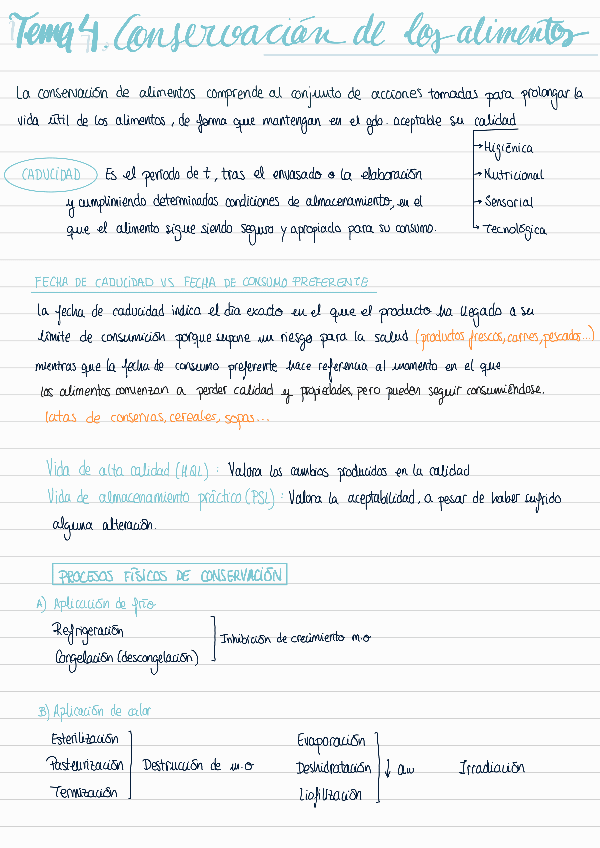 Tema 4. Conservación de los alimentos
La conservación de alimentos comprende al conjunto de acciones tomadas para prolongar la
vida útil de los alimentos, de forma que mantengan en el gdo. aceptable su calidad
→ Higiénica
→ Nutricional
→ Sensorial
→ Tecnológica
CADUCIDAD Es el período de t, tras el envasado o la elaboración
y cumplimiendo determinadas condiciones de almacenamiento, en el
que el alimento sigue siendo seguro y apropiado para su consumo.
FECHA DE CADUCIDAD VS FECHA DE CONSUMO PREFERENTE
La fecha de caducidad indica el día exacto en el que el producto ha llegado a su
límite de consumición porque supone un riesgo para la salud (productos frescos, carnes, pescados...)
mientras que la fecha de consumo preferente hace referencia al momento en el que
los alimentos comienzan a perder calidad y propiedades, pero pueden seguir consumiéndose.
latas de conservas, cereales, sopas...
Vida de alta calidad (HQL): Valora los cambios producidos en la calidad
Vida de almacenamiento práctico (PSL): Valora la aceptabilidad, a pesar de haber sufrido
alguna alteración.
PROCESOS FÍSICOS DE CONSERVACIÓN
A) Aplicación de frío
Refrigeración
Congelación (descongelación)
Inhibición de crecimiento m.o
B) Aplicación de calor
Esterilización
Pasteurización
Termización
Destrucción de m.o
Evaporación
Deshidratación
Liofilización
↓ aw
Irradiación